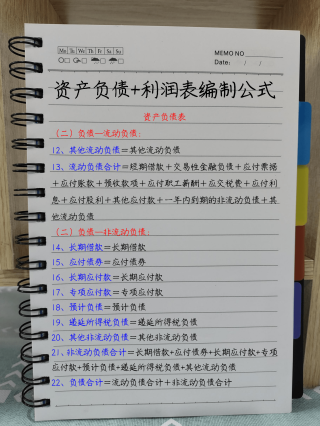 Mo Tu We Th Fr Sa Su
MEMO NO.
Date: / /
资产负债+利润表编制公式
资产负债表
(二)负债—流动负债:
12、其他流动负债=其他流动负债
13、流动负债合计=短期借款+交易性金融负债+应付票据
+应付账款+预收款项+应付职工薪酬+应交税费+应付利
息+应付股利+其他应付款+一年内到期的非流动负债+其
他流动负债
(二)负债—非流动负债:
14、长期借款=长期借款
15、应付债券=应付债券
16、长期应付款=长期应付款
17、专项应付款=专项应付款
18、预计负债=预计负债
19、递延所得税负债=递延所得税负债
20、其他非流动负债=其他非流动负债
21、非流动负债合计=长期借款+应付债券+长期应付款+专项
应付款+预计负债+递延所得税负债+其他流动负债
22、负债合计=流动负债合计+非流动负债合计